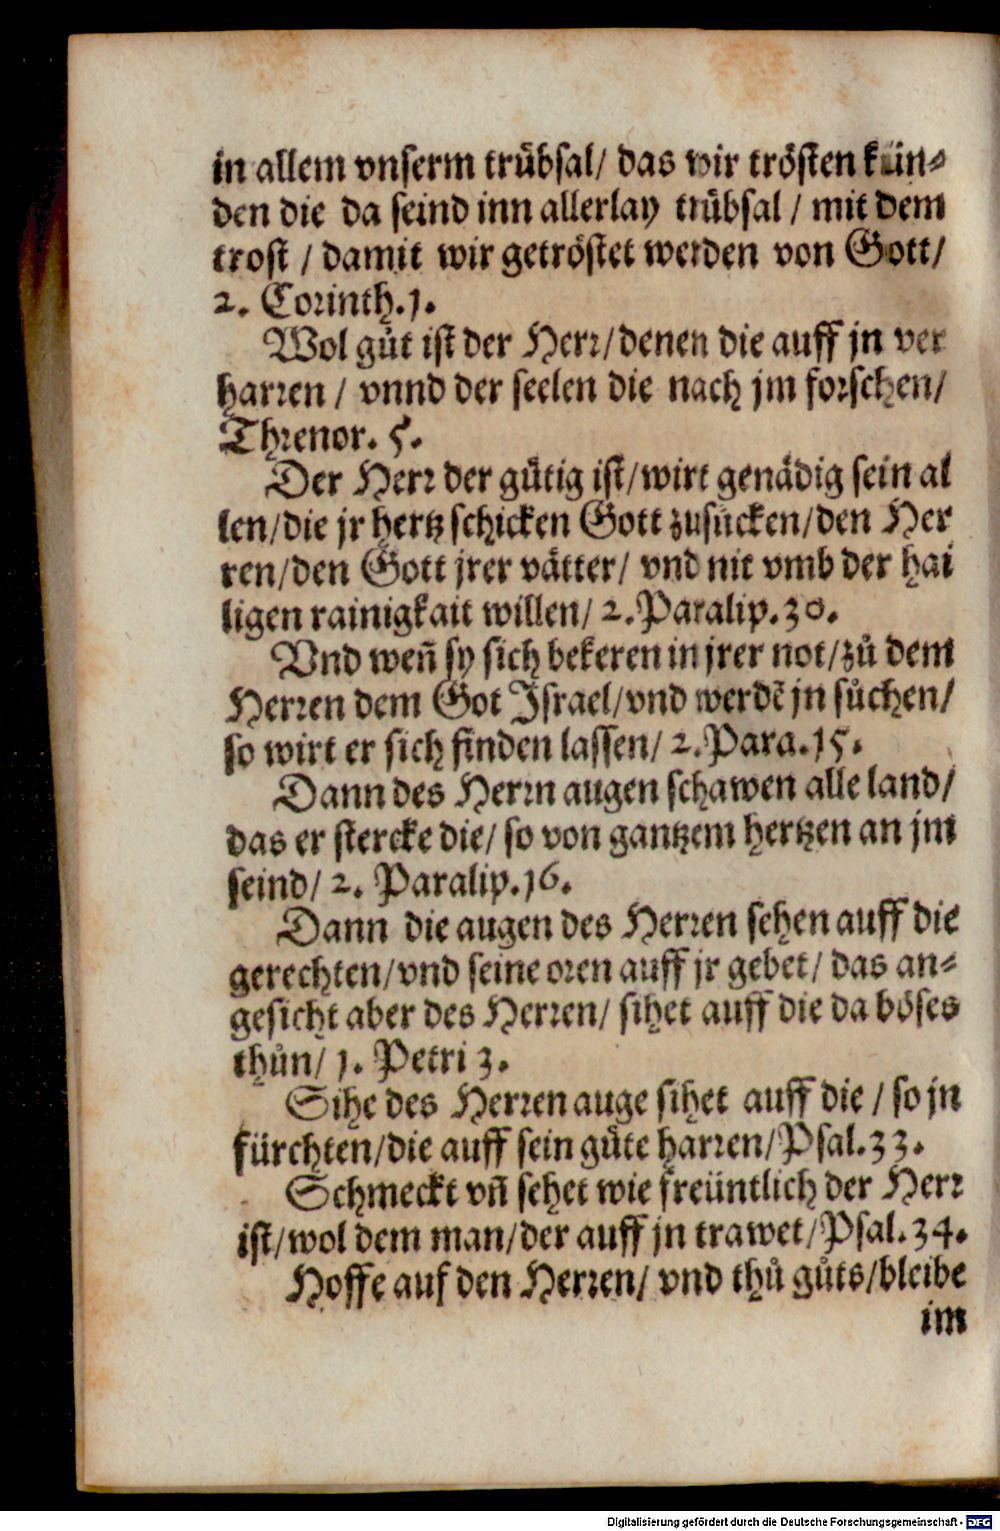 in allem vnserm trübsal/ das wir trösten kün⸗
den die da seind inn allerlay trübsal / mit dem
trost / damit wir getröstet werden von Gott/
2. Corinth. 1.
Wol gůt ist der Herr/denen die auff jn ver
harren / vnnd der seelen die nach jm forschen/
Threnor. 5.
Der Herr der gütig ist/wirt genädig sein al
len/die jr hertz schicken Gott zusücken/den Her
ren/den Gott jrer vätter/ vnd nit vmb der hai
ligen rainigkait willen/ 2.Paralip.30.
Vnd weñ sy sich bekeren in jrer not/zů dem
Herren dem Got Israel/vnd werdẽ jn sůchen/
so wirt er sich finden lassen/ 2.Para.15.
Dann des Herrn augen schawen alle land/
das er stercke die/ so von gantzem hertzen an jm
seind/ 2. Paralip.16.
Dann die augen des Herren sehen auff die
gerechten/vnd seine oren auff jr gebet/ das an⸗
gesicht aber des Herren/ sihet auff die da böses
thůn/ 1. Petri 3.
Sihe des Herren auge sihet auff die / so jn
fürchten/die auff sein güte harren/Psal.33.
Schmeckt vñ sehet wie freüntlich der Herr
ist/wol dem man/der auff jn trawet/Psal.34.
Hoffe auf den Herren/ vnd thů gůts/bleibe
im
Digitalisierung gefördert durch die Deutsche Forschungsgemeinschaft - DFG